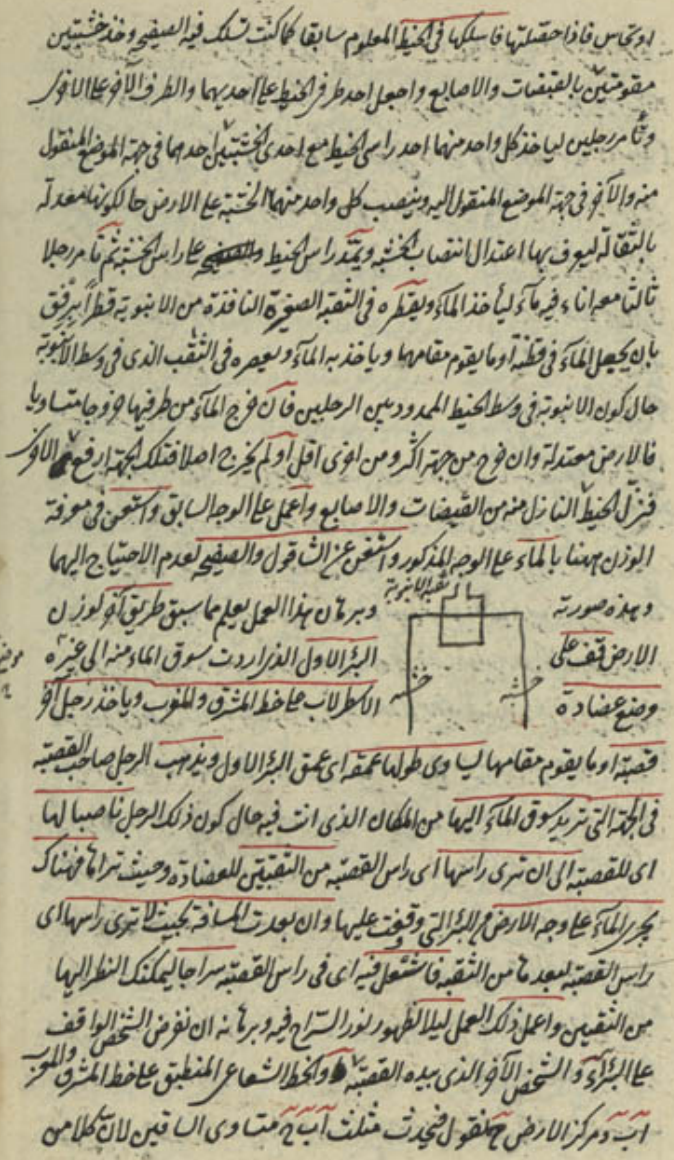 او نحاس فاذا حصلتها فاسلكها فى الخيط المعلوم سابقا كما كنت تسلك فيه الصفيحه وخذ خشبتين
مقومتين بالقبضات والاصابع واجعل احد طرفى الخيط على احديهما والطرف الآخر على الاخرى
وتأمر رجلين لياخذ كل واحد منهما احد راسى الخيط مع احدى الخشبتين احدهما فى جهة الموضع المنقول
منه والآخر فى جهة الموضع المنقول اليه وينصب كل واحد منهما الخشبة على الارض حال كونها معدلة
بالثقالة ليعرف بها اعتدال انتصاب الخشبه ويمتد راس الخيط على راس الخشبه ثم تأمر رجلا
ثالثا معه اناء فيه ماء ليأخذ الماء ويقطره فى الثقبه الصغيرة النافذة من الانبوبة قطرا برفق
بان يجعل الماء فى قطنه او ما يقوم مقامها وياخذ به الماء ويعصره فى الثقب الذى فى وسط الانبوبة
حال كون الانبوبة فى وسط الخيط الممدود بين الرجلين فان خرج الماء من طرفيها خروجا متساويا
فالارض معتدلة وان خرج من جهة اكثر ومن اخرى اقل او لم يخرج اصلا فتلك الجهة ارفع من الاخرى
فنزل الخيط النازل منه من القبضات والاصابع واعمل على الوجه السابق واستعن فى معرفة
الوزن ههنا بالماء على الوجه المذكور واستغن عن الشاقول والصفيحه لعدم الاحتياج اليهما
وهذه صورته
ثقبة الانبوبة
وبرهان هذا العمل يعلم مما سبق طريق آخر لوزن
الارض قف على
خشبه
خشبه
البئر الاول الذى اردت سوق الماء منه الى غيره
موضع
وضع عضادة
الاسطرلاب على خط المشرق والمغرب وياخذ رجل آخر
قصبة او ما يقوم مقامها ليساوى طولها عمقه اى عمق البئر الاول ويذهب الرجل صاحب القصبه
فى الجهة التى تريد سوق الماء اليها من المكان الذى انت فيه حال كون ذلك الرجل ناصبا لها
اى للقصبة الى ان ترى راسها اى راس القصبه من الثقبتين للعضادة وحيث تراها فهناك
يجرى الماء على وجه الارض من البئر التى وقفت عليها وان بعدت المسافة بحيث لا ترى راسها اى
راس القصبة لبعدها من الثقبه فاشتعل فيه اى فى راس القصبه سراجا ليمكنك النظر اليها
من الثقبين واعمل ذلك العمل ليلا لظهور نور السراج فيه وبرهانه ان نفرض الشخص الواقف
على البئر آ والشخص الآخر الذى بيده القصبة والخط الشعاعى المنطبق على خط المشرق والمغرب
آب ومركز الارض ح فنقول فيحدث مثلث آب ح متساوى الساقين لان كلا من